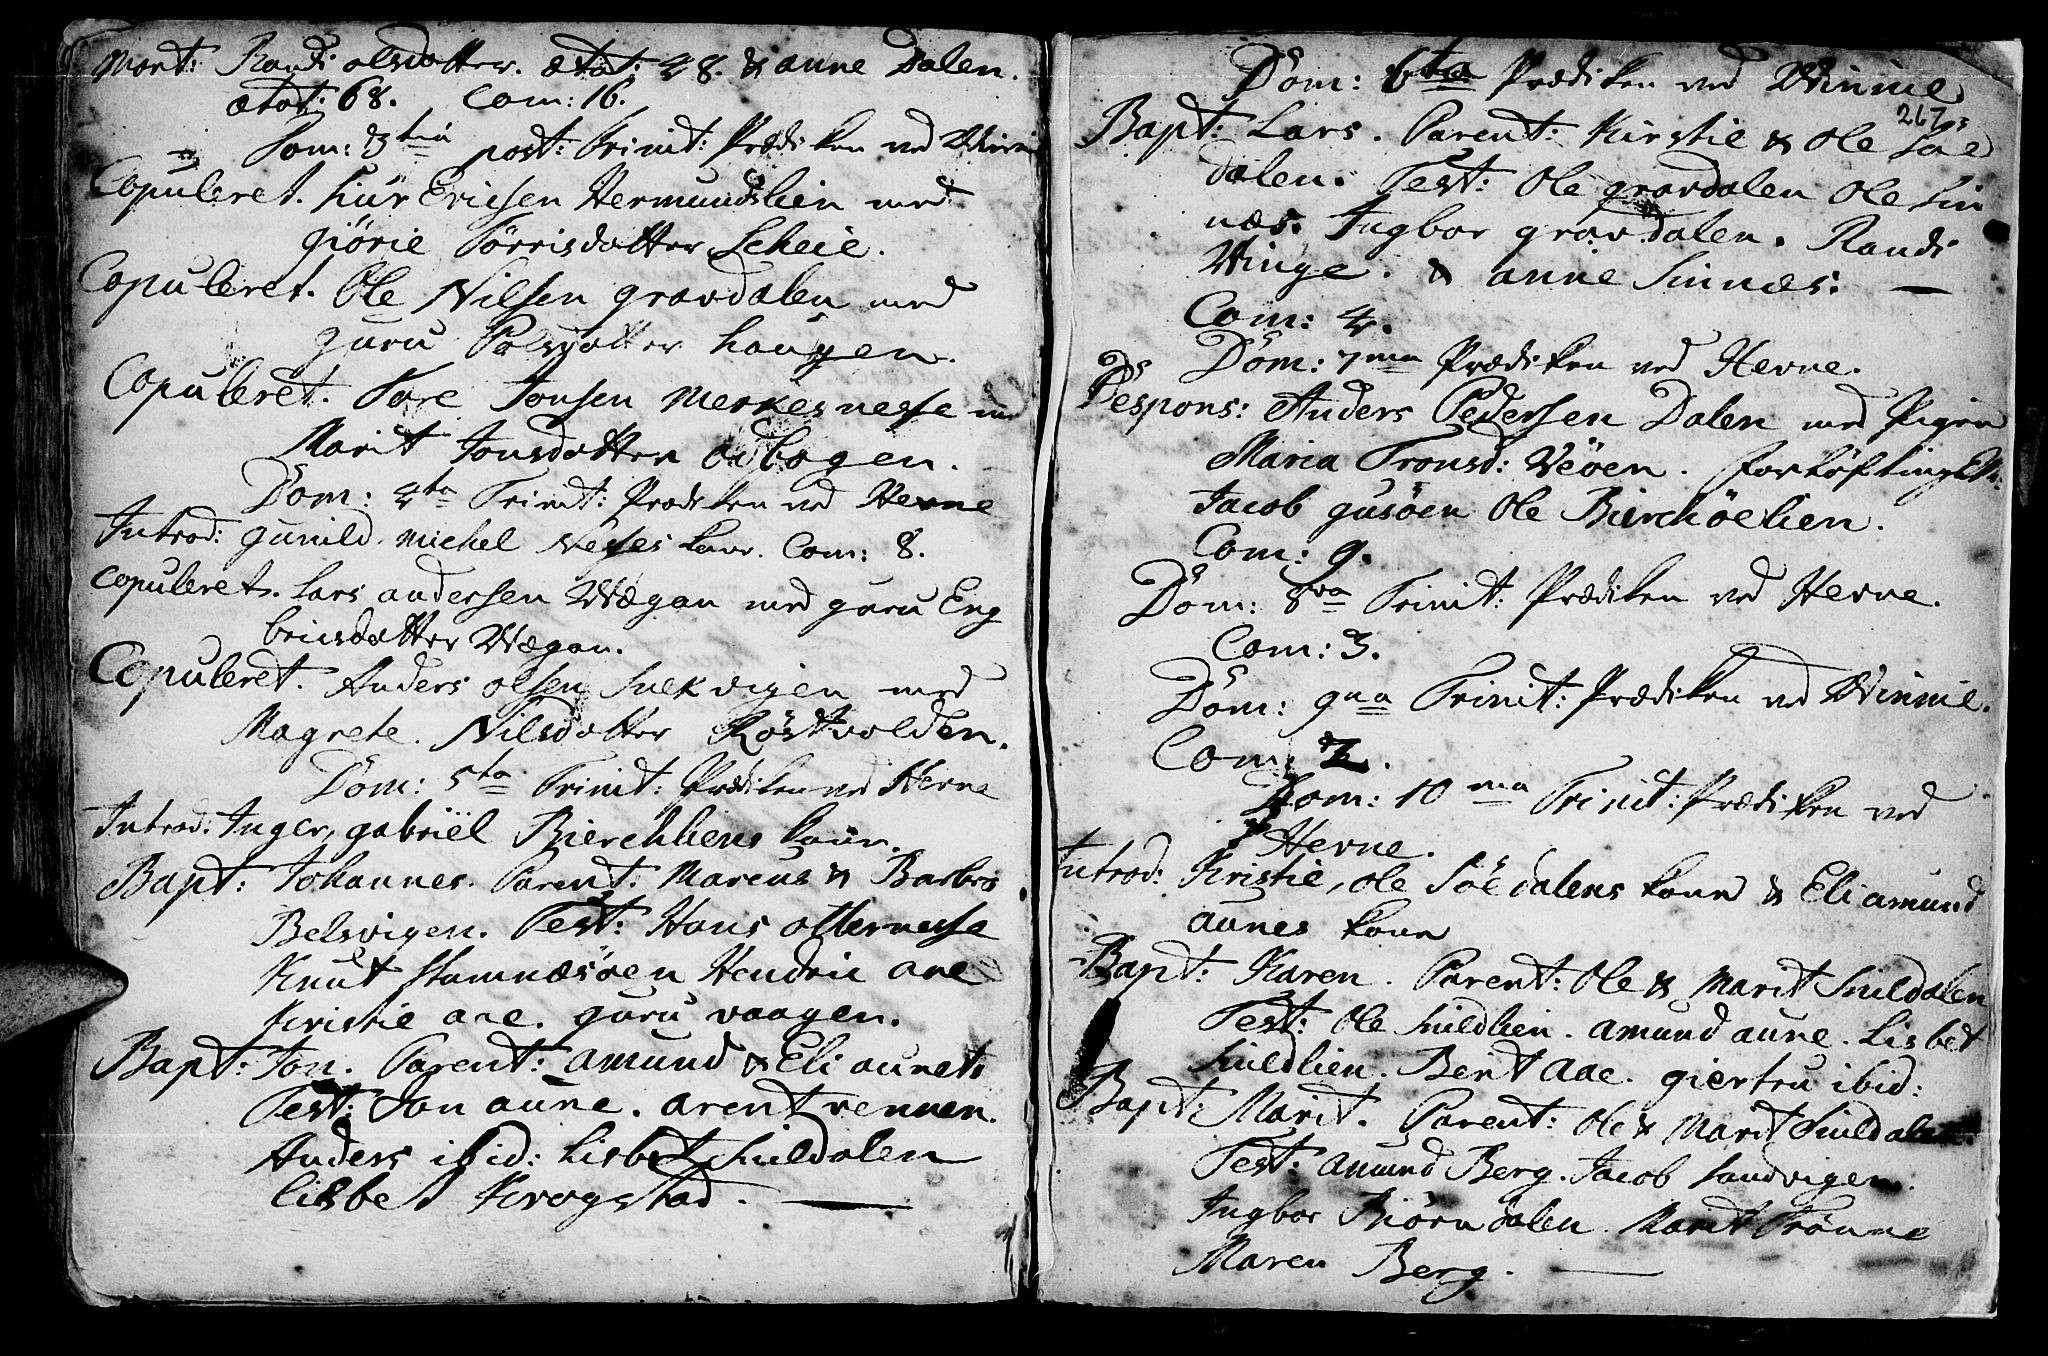 Mort: Randi olsdatter. ætat: 48. & anne Dalen.
ætat: 68. Com: 16.
Dom: 3tia post: Trinit: Prædiken ved Winnie
Copuleret. Siur Ericsen Hermundslien med
Giörie Törrisdatter Scheie.
Copuleret. Ole Nilsen gravdalen med
guru Palsdatter haugen.
Copuleret. Tore Jonsen Merkesnesse med
Marit Jonsdatter odbogen.
Dom: 4ta Trinit: Prædiken ved Hevne
Introd: gunild. Michel Nesses kone. Com: 8.
Copuleret. Lars andersen Wægan med guru Eng
brigsdatter Wægan.
Copuleret. Anders olsen Snekvigen med
Magrete. Nilsdatter Röstvolden.
Dom: 5ta Trinit: Prædiken ved Hevne
Introd: Inger, gabriel Bierchliens kone.
Bapt: Johannes. Parent: Marcus & Barbro
Belsvigen. Test: Hans otternesse
Knut Stamnæsöen Hendric aae
Kristie aae. guru vaagen.
Bapt: Jon. Parent: amund & Eli aunet.
Test: Jon aune. arent rennen.
Anders ibid: Lisbet Snildalen
Lisbet Krogstad.
Dom: 6ta Prædiken ved Winnie
267
Bapt: Lars. Parent: Kirstie & Ole Söe
dalen. Test: Ole gravdalen Ole Sin
næs. Ingbor gravdalen. Randi
Winge. & anne Sinnæs.
Com: 4.
Dom: 7ma Prædiken ved Hevne.
Despons: Anders Pedersen Dalen med Pigen
Maria Tronsd: Weöen. forlöftingsM:
Jacob gusöen Ole Bierchöelien.
Com: 9.
Dom: 8va Trinit: Prædiken ved Hevne.
Com: 3.
Dom: 9na Trinit: Prædiken ved Winnie.
Com: 2.
Dom: 10ma Trinit: Prædiken ved
Hevne.
Introd: Kristie, ole Söedalens kone & Eli amund
aunes kone
Bapt: Karen. Parent: Ole & Marit Snildalen
Test: Ole Snildlien. amund aune. Lisbet
Snildlien. Berit Aae. giertru ibid:
Bapt: Marit. Parent: Ole & Marit Snildalen
Test: amund Berg. Jacob Sandvigen.
Ingbor Biörndalen Marit Trönne
Maren Berg.